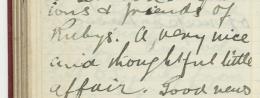 ions & friends of
Rubys. A very nice
and thoughtful little
affair. Good news